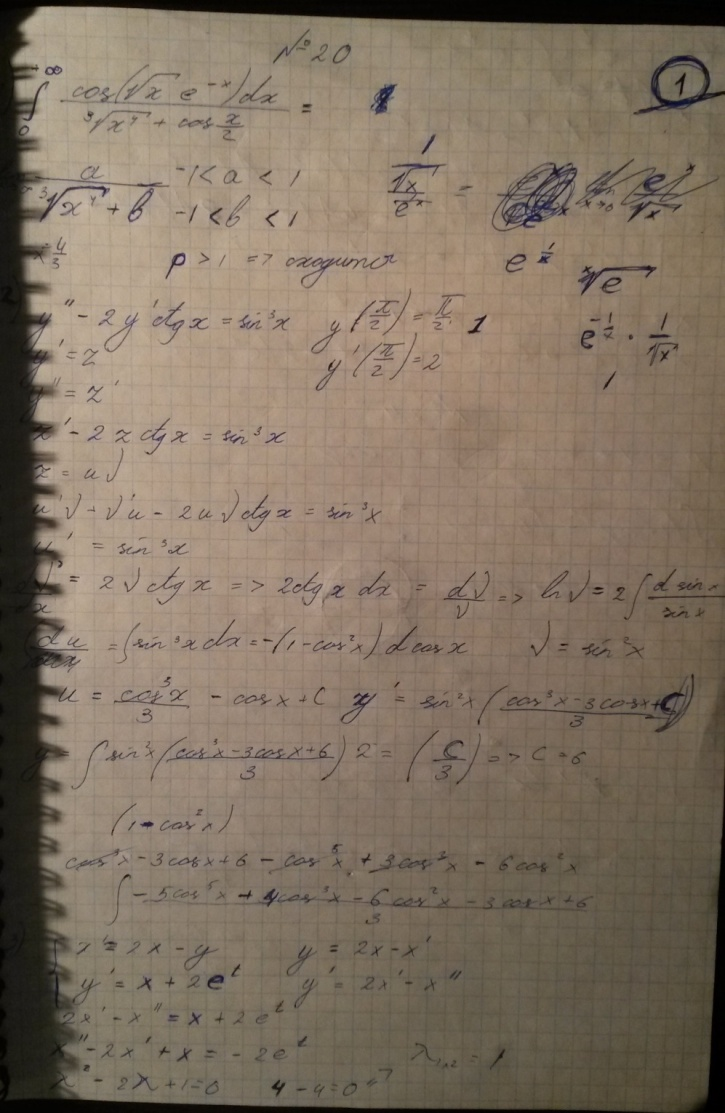 №20
1
∫₀^{+∞} cos(√x e^{-x})dx / (³√x⁴ + cos x/2) =
a / (³√x⁴ + b) -1 < a < 1
-1 < b < 1
1 / (√x / e^x) =
x^{4/3} p > 1 => сходится
e^{1/x} ˣ√e
2) y'' - 2y' ctgx = sin³x y(π/2) = π/2 1
y' = z y'(π/2) = 2
e^{-1/x} · 1/√x
y'' = z' 1
z' - 2z ctgx = sin³x
z = uv
u'v + v'u - 2uv ctgx = sin³x
u' = sin³x
dv/dx = 2v ctgx => 2ctgx dx = dv/v => lnv = 2∫ d sinx / sinx
du/dx = ∫sin³x dx = -(1-cos²x) d cosx v = sin²x
u = cos³x/3 - cosx + C y' = sin²x (cos³x - 3cosx + C / 3)
y = ∫ sin²x (cos³x - 3cosx + 6 / 3) 2 = (C/3) => C = 6
(1-cos²x)
cos³x - 3cosx + 6 - cos⁵x + 3cos³x - 6cos²x
∫ -5cos⁵x + 4cos³x - 6cos²x - 3cosx + 6 / 3
3) { x' = 2x - y y = 2x - x'
y' = x + 2e^t y' = 2x' - x''
2x' - x'' = x + 2e^t
x'' - 2x' + x = -2e^t λ₁,₂ = 1
λ² - 2λ + 1 = 0 4 - 4 = 0